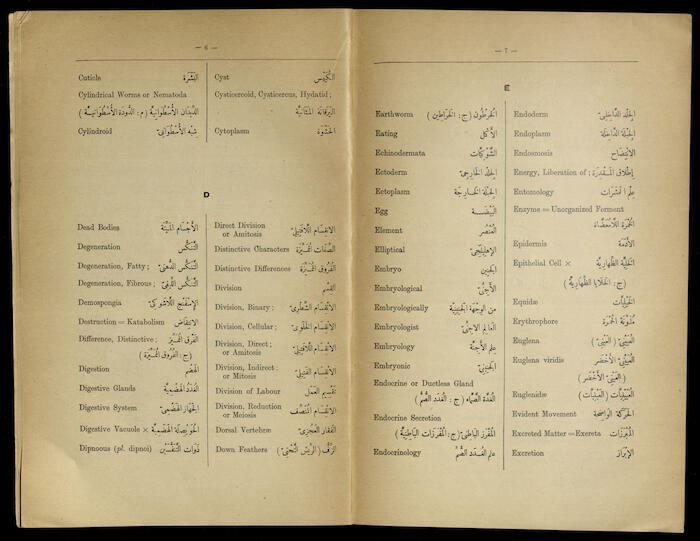 — 6 —
Cuticle البَشَرَة
Cylindrical Worms or Nematoda
الدِّيدَان الأُسْطُوَانِيَّة (م: الدُّودَة الأُسْطُوَانِيَّة)
Cylindroid شِبْه الأُسْطُوَانِيّ
Cyst
Cysticercoid, Cysticercus, Hydatid ;
Cytoplasm الحَشْوَة
D
Dead Bodies الأَجْسَام المَيِّتَة
Degeneration التَّنَكُّس
Degeneration, Fatty ; التَّنَكُّس الدُّهْنِيّ
Degeneration, Fibrous ; التَّنَكُّس اللِّيفِيّ
Demospongia
Destruction = Katabolism
Difference, Distinctive ; الفَرْق المُمَيِّز
(ج: الفُرُوق المُمَيِّزَة)
Digestion الهَضْم
Digestive Glands الغُدَد الهَضْمِيَّة
Digestive System الجِهَاز الهَضْمِيّ
Digestive Vacuole × الحُوَيْصِلَة الهَضْمِيَّة
Dipnoous (pl. dipnoi) ذَوَات التَّنَفُّسَيْن
Direct Division
or Amitosis
Distinctive Characters الصِّفَات المُمَيِّزَة
Distinctive Differences الفُرُوق المُمَيِّزَة
Division
Division, Binary ; الانْقِسَام الشَّطْرِيّ
Division, Cellular ; الانْقِسَام الخَلَوِيّ
Division, Direct ;
or Amitosis
Division, Indirect ;
or Mitosis
Division of Labour تَقْسِيم العَمَل
Division, Reduction
or Meiosis الانْقِسَام المُنَصِّف
Dorsal Vertebræ
Down Feathers
— 7 —
E
Earthworm الخُرْطُون (ج: الخَرَاطِين)
Eating الأَكْل
Echinodermata الشَّوْكِيَّات
Ectoderm الجِلْد الخَارِجِيّ
Ectoplasm الجِبْلَة الخَارِجَة
Egg البَيْضَة
Element العُنْصُر
Elliptical الإِهْلِيلِجِيّ
Embryo الجَنِين
Embryological
Embryologically من الوِجْهَة الجَنِينِيَّة
Embryologist
Embryology عِلم الأَجِنَّة
Embryonic الجَنِينِيّ
Endocrine or Ductless Gland
الغُدَّة الصَّمَّاء (ج: الغُدَد الصُّمّ)
Endocrine Secretion
المُفْرَز البَاطِنِيّ (ج: المُفْرَزَات البَاطِنِيَّة)
Endocrinology عِلم الغُدَد الصُّمّ
Endoderm الجِلْد الدَّاخِلِيّ
Endoplasm الجِبْلَة الدَّاخِلَة
Endosmosis
Energy, Liberation of ; إِطْلَاق المَقْدِرَة
Entomology عِلم الحَشَرَات
Enzyme = Unorganized Ferment
Epidermis الأَدَمَة
Epithelial Cell × الخَلِيَّة الظِّهَارِيَّة
(ج: الخَلَايَا الظِّهَارِيَّة)
Equidæ الخَيْلِيَّات
Erythrophore
Euglena
Euglena viridis
Euglenidæ
Evident Movement الحَرَكَة الوَاضِحَة
Excreted Matter = Exereta المُبْرَزَات
Excretion الإِبْرَاز